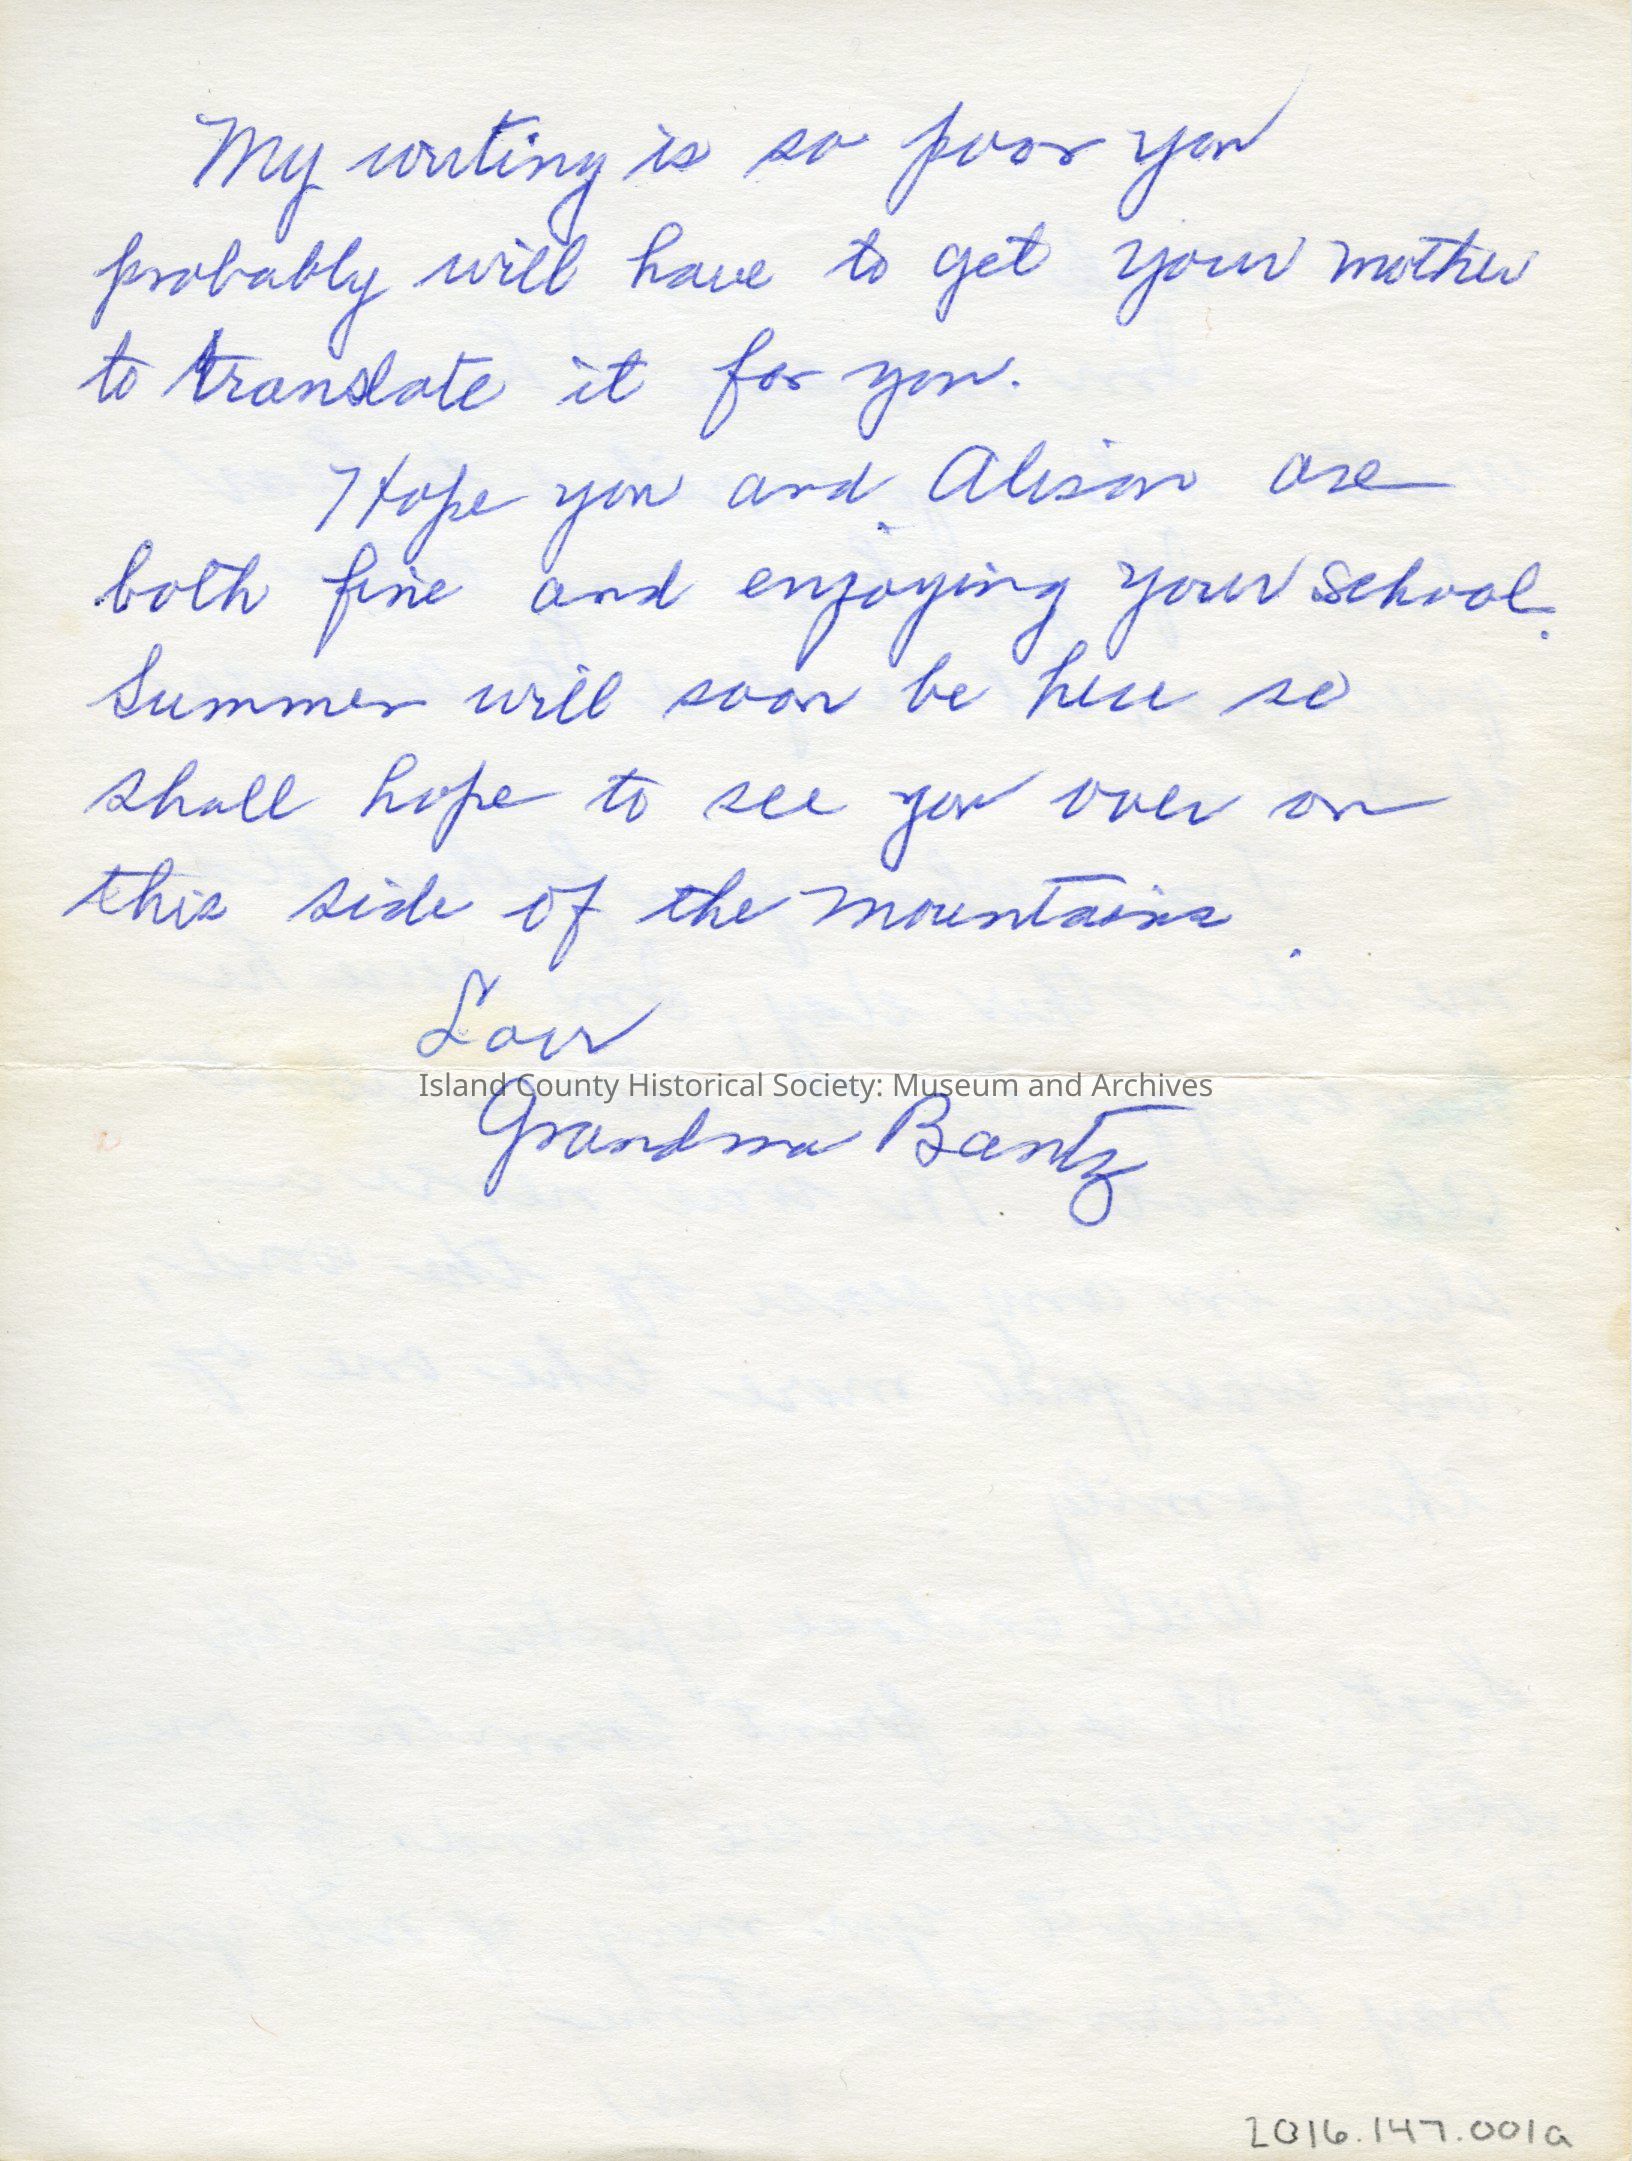 My writing is so poor you
probably will have to get your mother
to translate it for you.
Hope you and Alison are
both fine and enjoying your school.
Summer will soon be here so
shall hope to see you over on
this side of the mountains.
Love
Island County Historical Society: Museum and Archives
Grandma Bantz
2016.147.001a